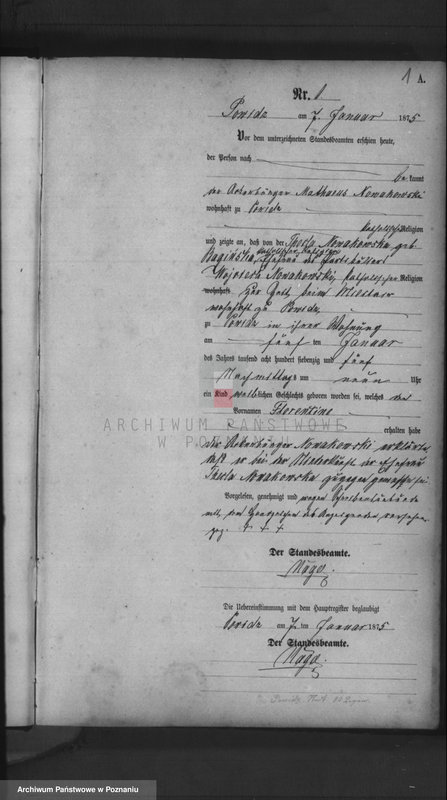 1 A.
Nr. 1
Powidz am 7. Januar 1875
Vor dem unterzeichneten Standesbeamten erschien heute,
der Person nach
be kannt
der Ackerbürger Mathaeus Nowakowski
wohnhaft zu Powidz
katholischer Religion
und zeigte an, daß von der Thecla Nowakowska geb
katholischer Religion
Ehefrau des
Wojciech Nowakowski, katholischer Religion
wohnhaft zur Zeit beim Militair
wohnhaft zu Powidz,
zu Powidz in ihrer Wohnung
am fünf ten Januar
des Jahres tausend acht hundert siebenzig und fünf
Nachmittags um neun Uhr
ein Kind weiblichen Geschlechts geboren worden sei, welches den
Vornamen Florentine
ARCHIWUM PAŃSTWOWE
W PO
erhalten habe
Der Ackerbürger Nowakowski erklärte,
daß er bei der Niederkunft der Ehefrau
Thecla Nowakowska zugegen gewesen sei
Vorgelesen, genehmigt und wegen Schreibensunkunde
mit dem Handzeichen des versehen
gez. + + +
Der Standesbeamte.
Die Uebereinstimmung mit dem Hauptregister beglaubigt
Powidz am 7 ten Januar 1875
Der Standesbeamte.
Archiwum Państwowe w Poznaniu